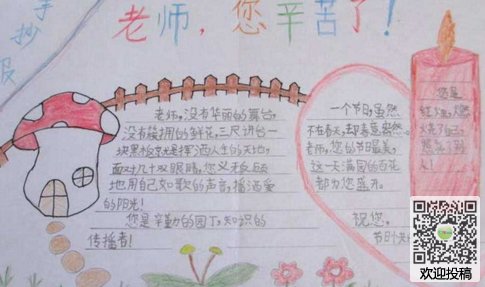 手抄报
老师,您辛苦了!
老师,没有华丽的舞台,
没有簇拥的鲜花,三尺讲台一
块黑板就是挥洒人生的天地,
面对几十双眼睛,您义无反顾
地用自己如歌的声音,播洒爱
的阳光!
您是辛勤的园丁,知识的
传播者!
一个节日,虽然
不在春天,却春意盎然。
老师,您的节日最美,
这一天满园的百花
都为您盛开。
祝您,
节日
您是
红烛,燃
烧了自己,
照亮了别
人!
欢迎投稿